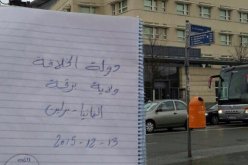 دولة الخلافة
ولاية برقة
المانيا - برلين
2015 - 12 - 13